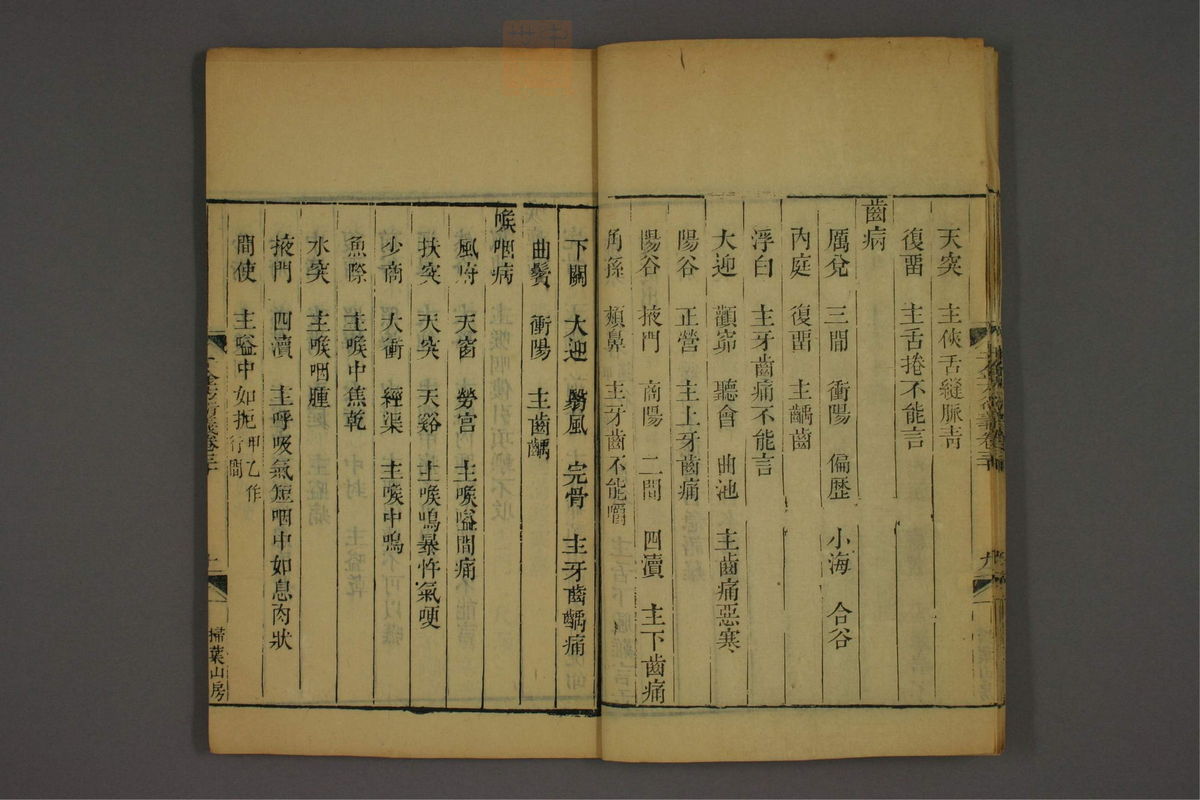 天突　主俠舌縫脈青
復畱　主舌捲不能言
齒病
厲兌　三間　衝陽　偏歷　小海　合谷
內庭　復畱　主齲齒
浮白　主牙齒痛不能言
大迎　顴窌　聽會　曲池　主齒痛惡寒
陽谷　正營　主上牙齒痛
陽谷　掖門　商陽　二間　四瀆　主下齒痛
角孫　頰鼻　主牙齒不能嚼
下關　大迎　翳風　完骨　主牙齒齲痛
曲鬢　衝陽　主齒齲
喉咽病
風府　天窗　勞宮　主喉嗌間痛
扶突　天突　天谿　主喉鳴暴忤氣哽
少商　大衝　經渠　主喉中鳴
魚際　主喉中焦乾
水突　主喉咽腫
掖門　四瀆　主呼吸氣短咽中如息肉狀
間使　主嗌中如扼甲乙作行間
掃葉山房